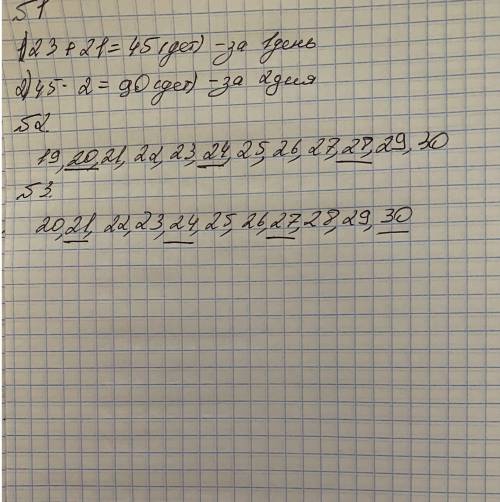 51
1) 23 + 21 = 45 (дет) - за 1 день
2) 45 · 2 = 90 (дет) - за 2 дня
52.
19, 20, 21, 22, 23, 24, 25, 26, 27, 28, 29, 30
53.
20, 21, 22, 23, 24, 25, 26, 27, 28, 29, 30